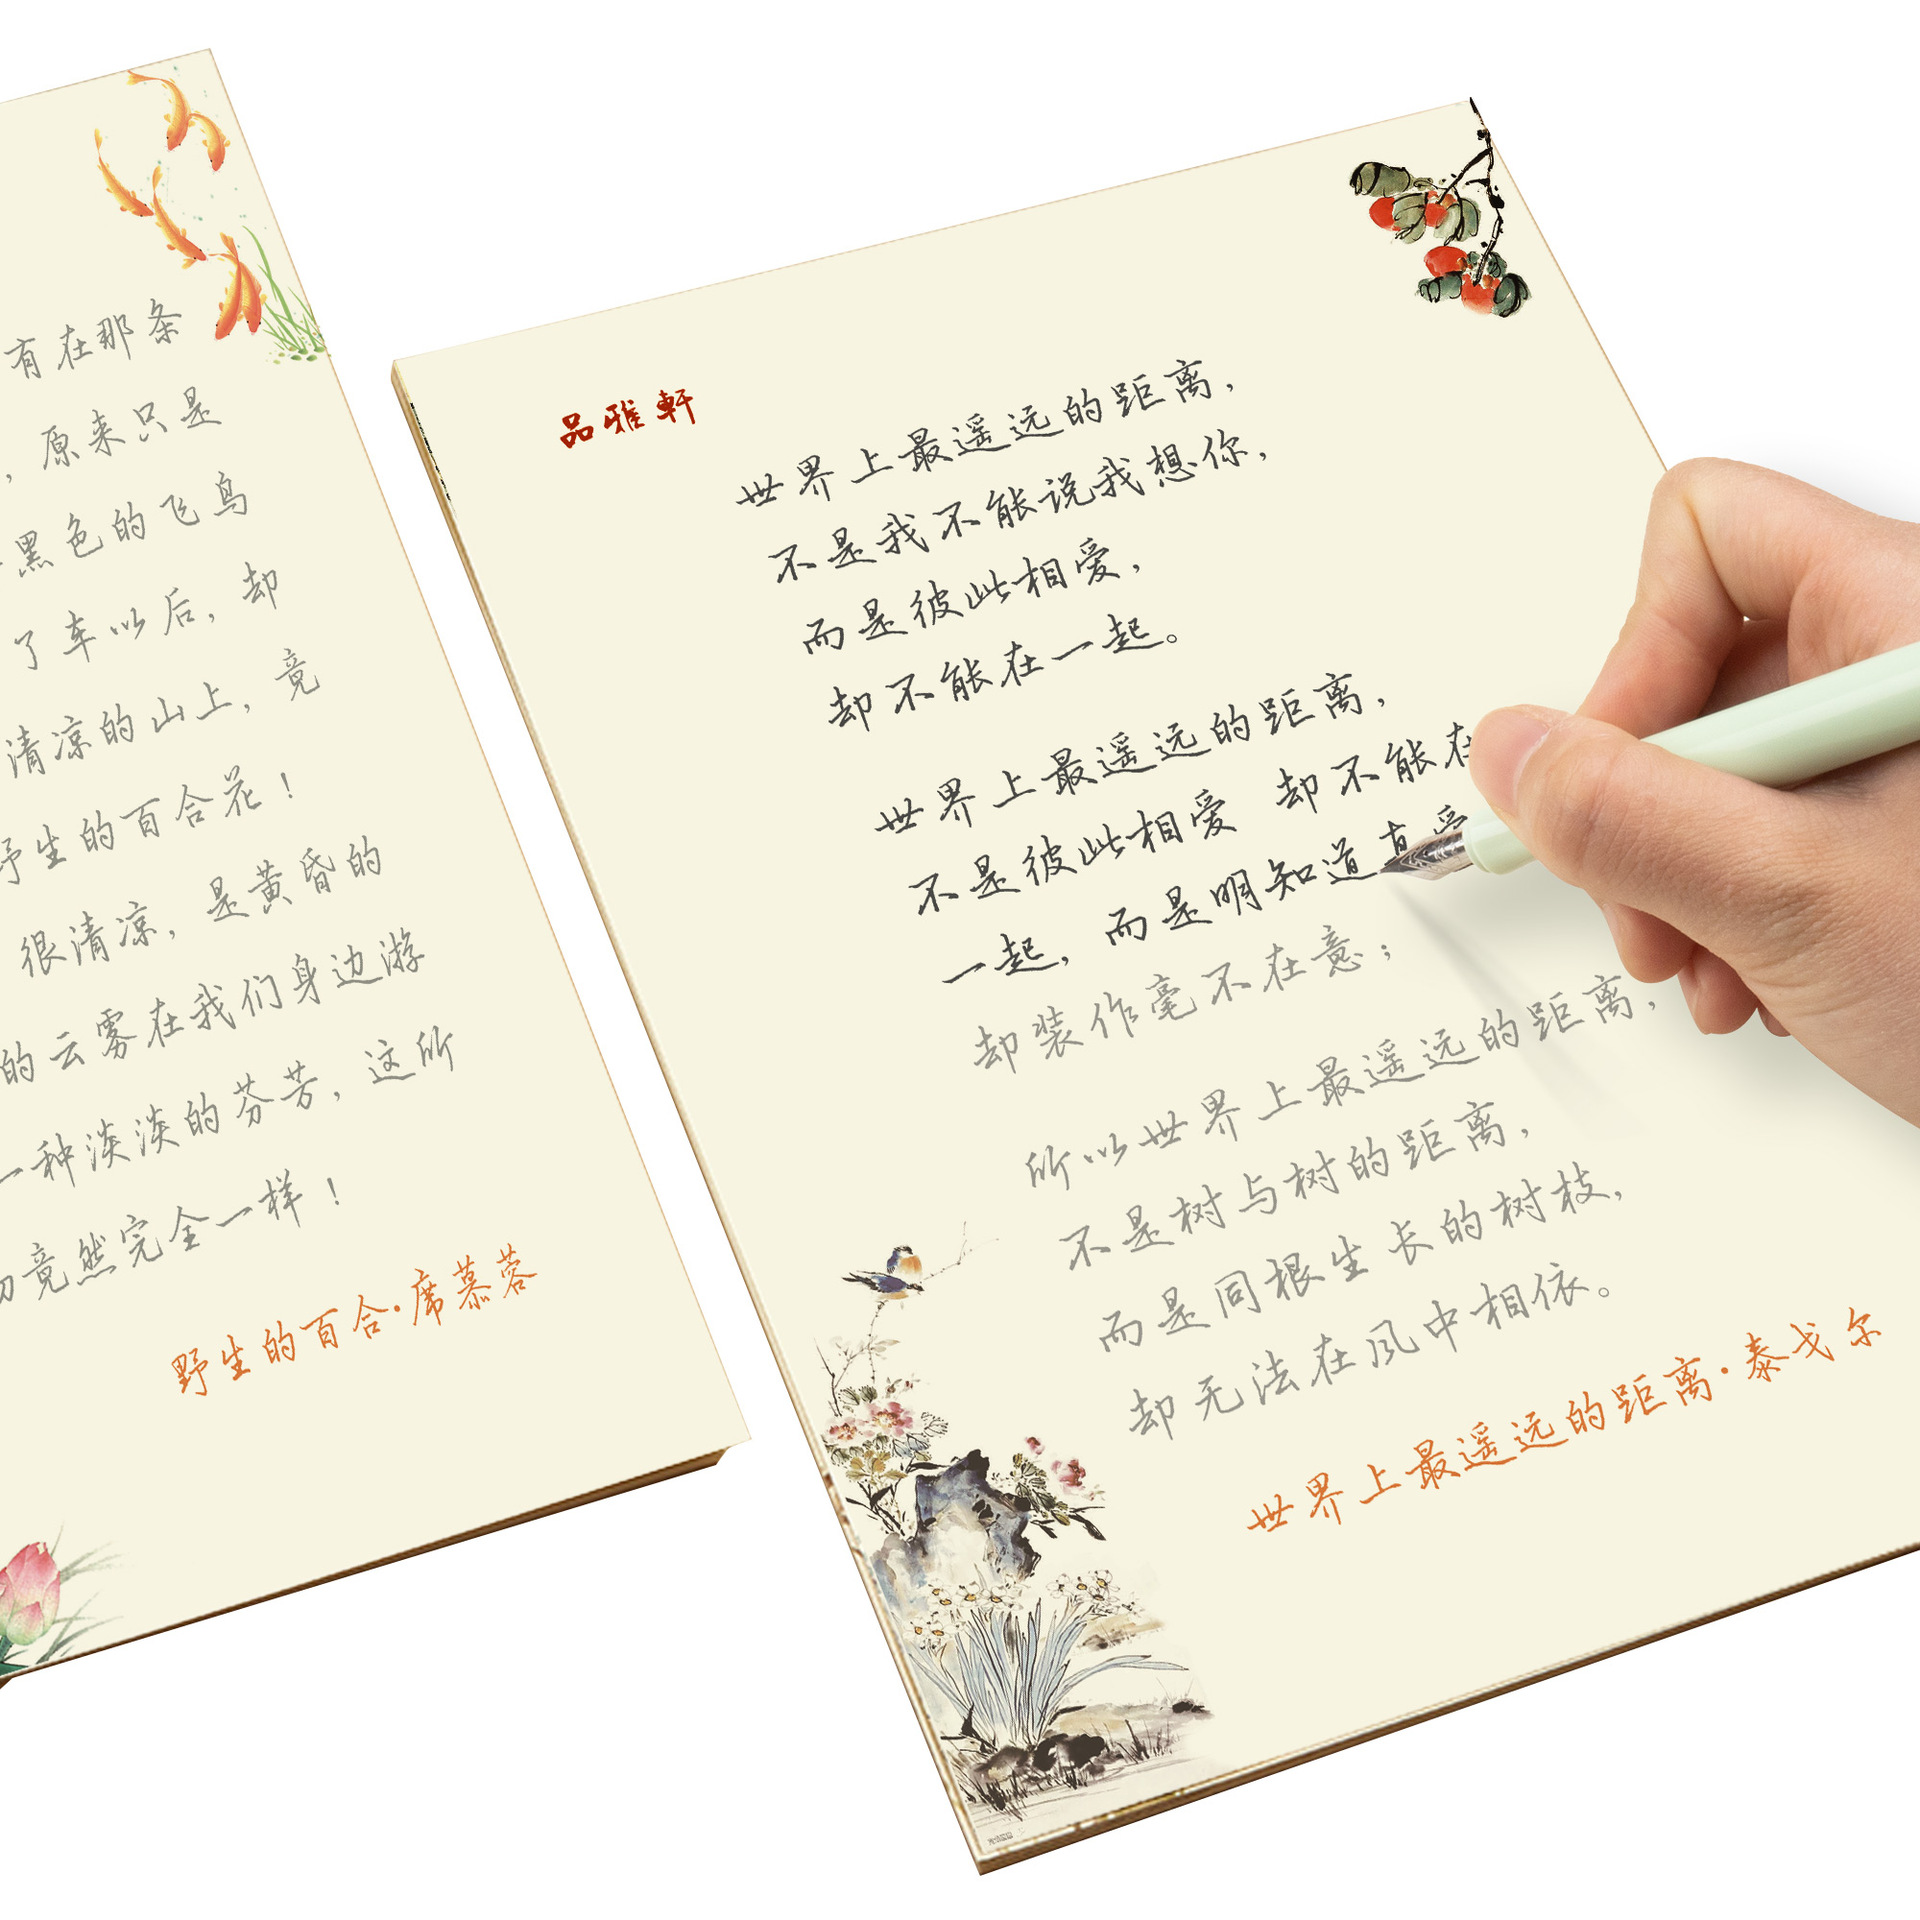 有在那条
，原来只是
黑色的飞鸟
了车以后，却
清凉的山上，竟
野生的百合花！
很清凉，是黄昏的
的云雾在我们身边游
一种淡淡的芬芳，这所
切竟然完全一样！
野生的百合·席慕蓉
品雅軒
世界上最遥远的距离，
不是我不能说我想你，
而是彼此相爱，
却不能在一起。
世界上最遥远的距离，
不是彼此相爱 却不能在
一起，而是明知道真爱
却装作毫不在意；
所以世界上最遥远的距离，
不是树与树的距离，
而是同根生长的树枝，
却无法在风中相依。
世界上最遥远的距离·泰戈尔